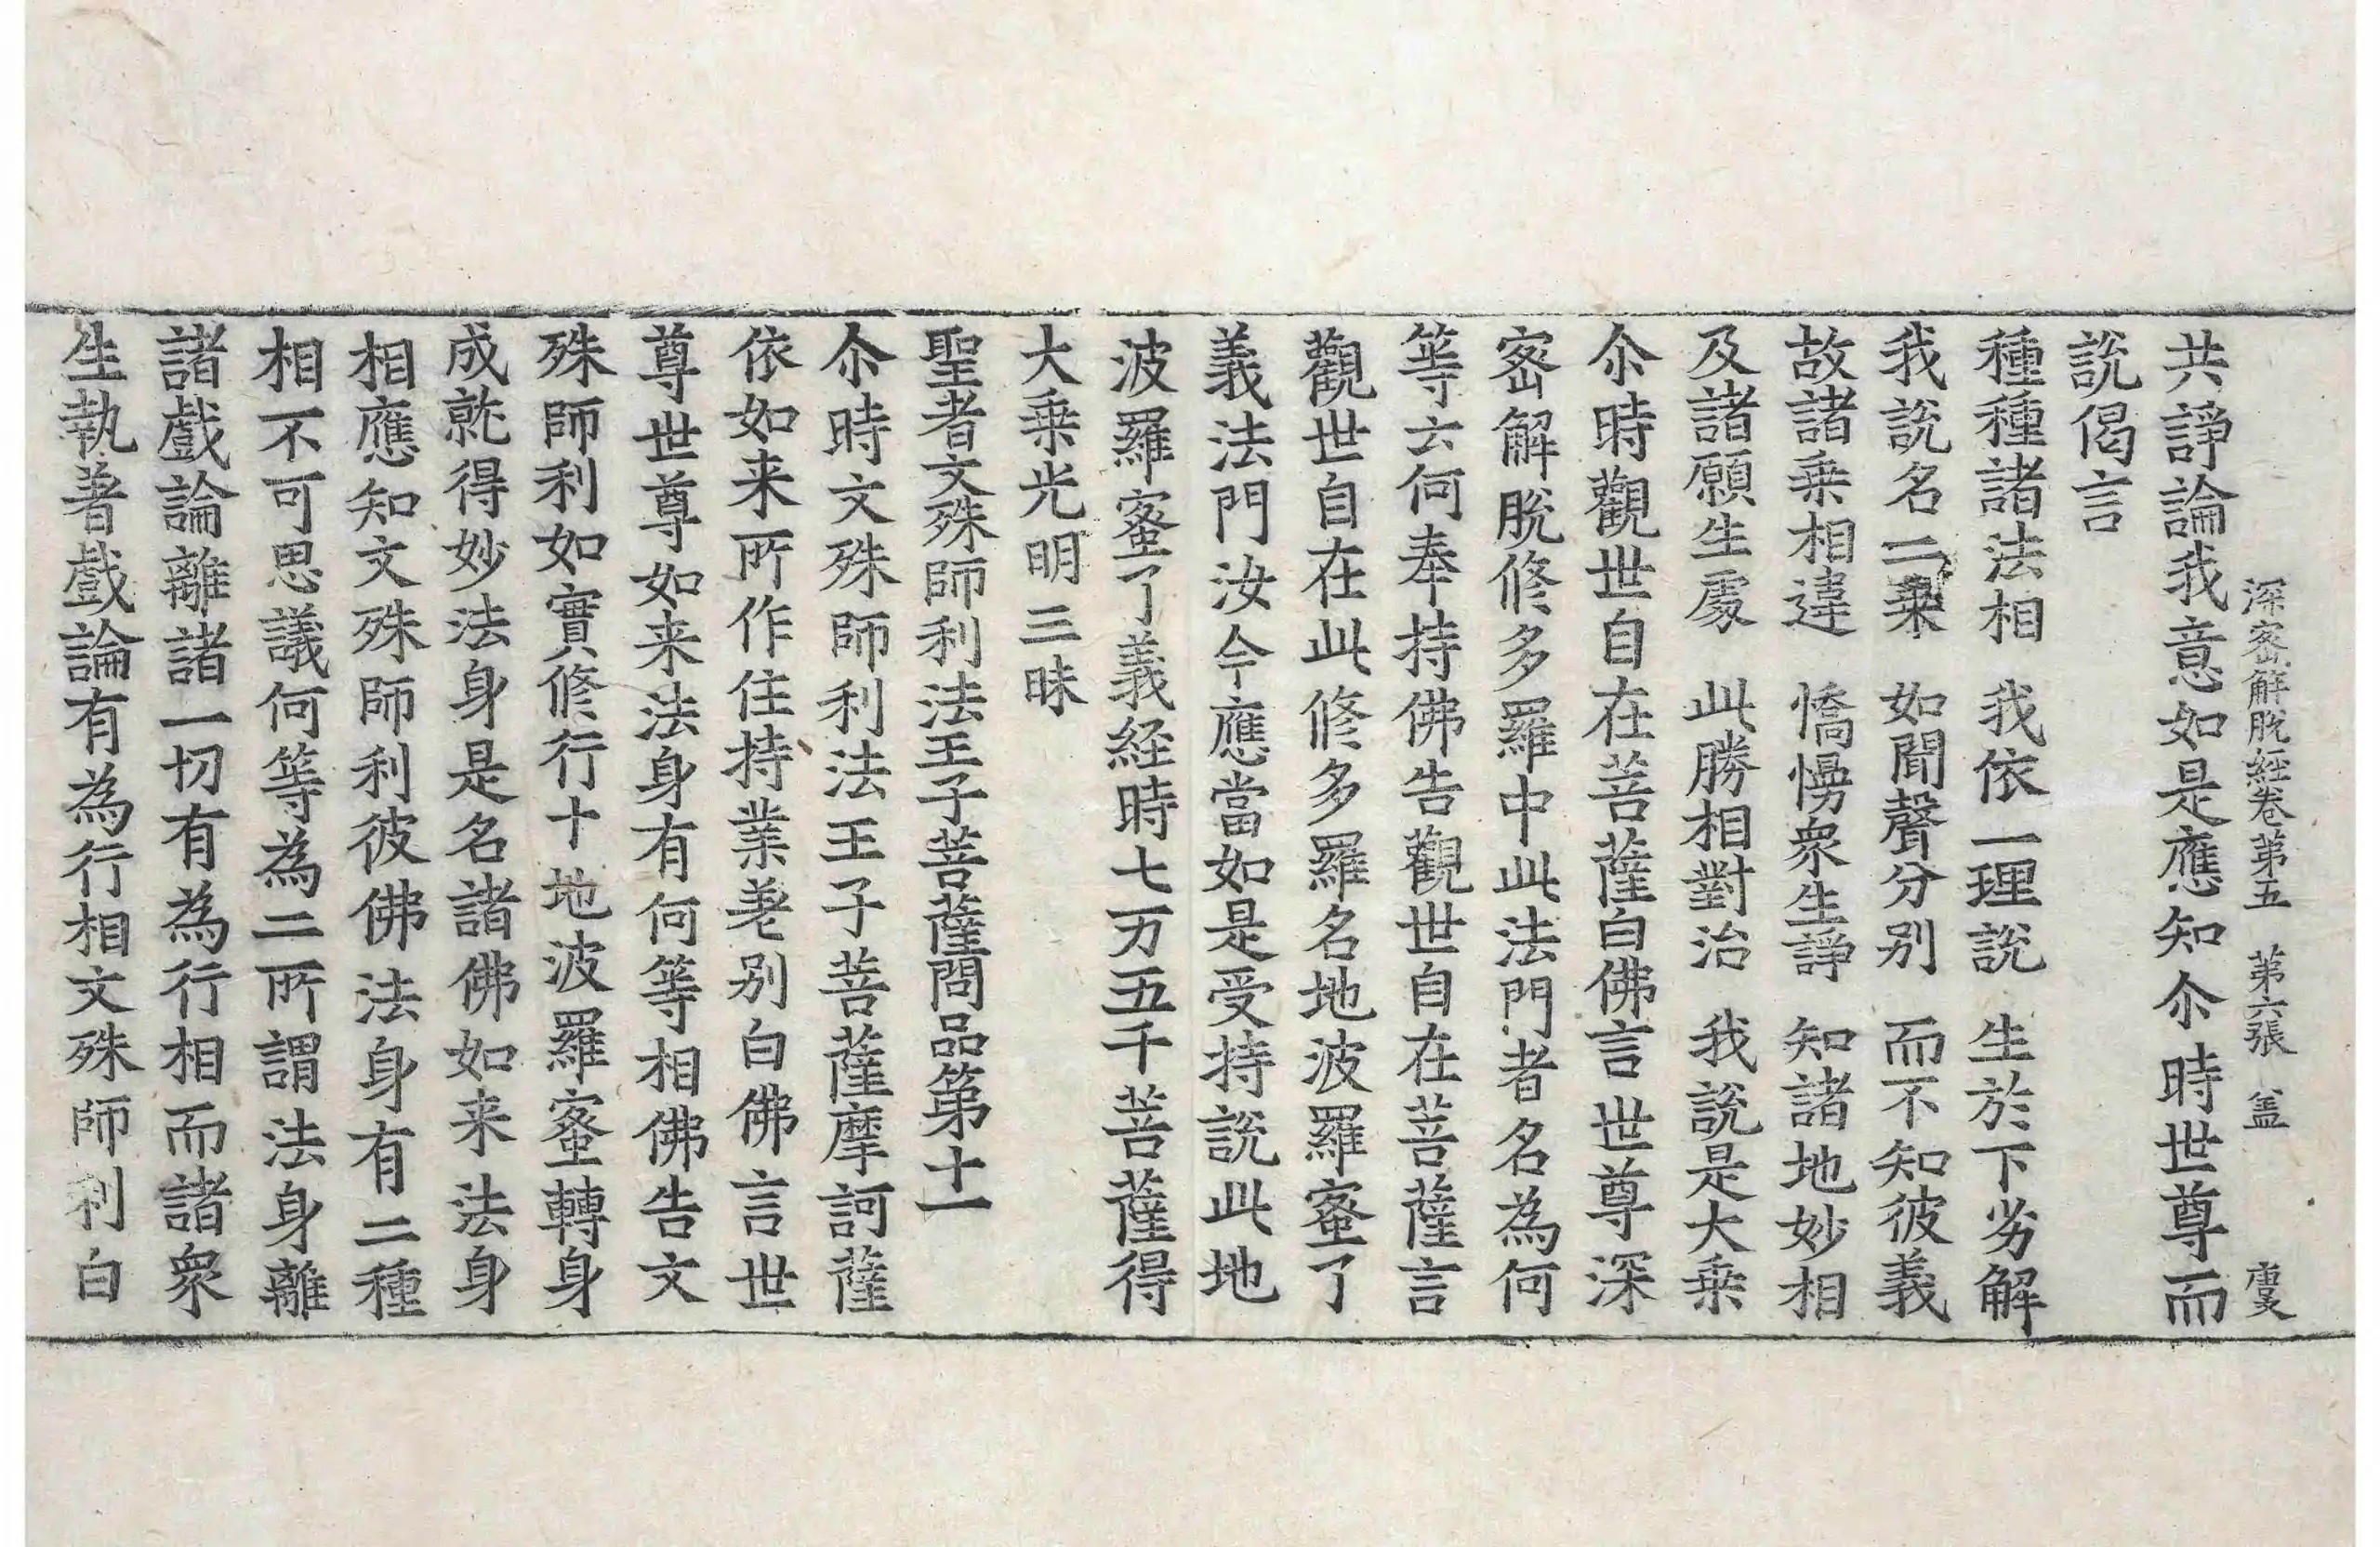 深密解脫經卷第五 第六張 盖 虔
共諍論我意如是應知尒時世尊而
說偈言
種種諸法相 我依一理說 生於下劣解
我說名二乗 如聞聲分别 而不知彼義
故諸乗相違 憍慢衆生諍 知諸地妙相
及諸願生處 此勝相對治 我說是大乗
尒時觀世自在菩薩白佛言世尊深
密解脫修多羅中此法門者名為何
等云何奉持佛告觀世自在菩薩言
觀世自在此修多羅名地波羅蜜了
義法門汝今應當如是受持說此地
波羅蜜了義経時七万五千菩薩得
大乗光明三昧
聖者文殊師利法王子菩薩問品第十一
尒時文殊師利法王子菩薩摩訶薩
依如来所作住持業差别白佛言世
尊世尊如来法身有何等相佛告文
殊師利如實修行十地波羅蜜轉身
成就得妙法身是名諸佛如来法身
相應知文殊師利彼佛法身有二種
相不可思議何等為二所謂法身離
諸戲論離諸一切有為行相而諸衆
生執著戲論有為行相文殊師利白